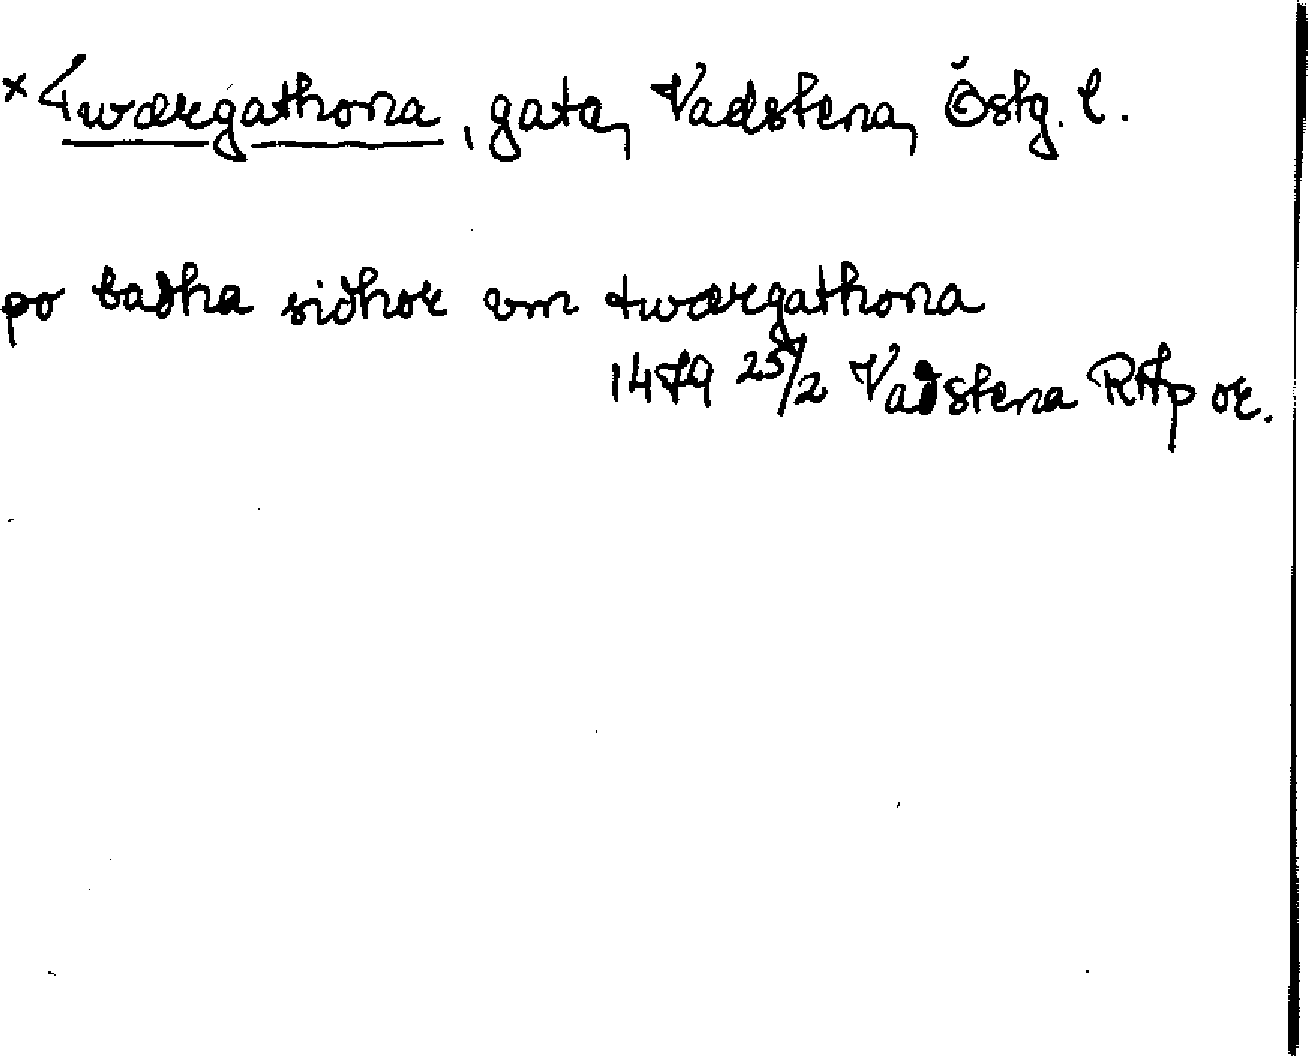 ×Twærgathona, gata, Vadstena, Östg. l.
po badha sidhor vm twærgathona
1479 25/2 Vadstena RAp or.